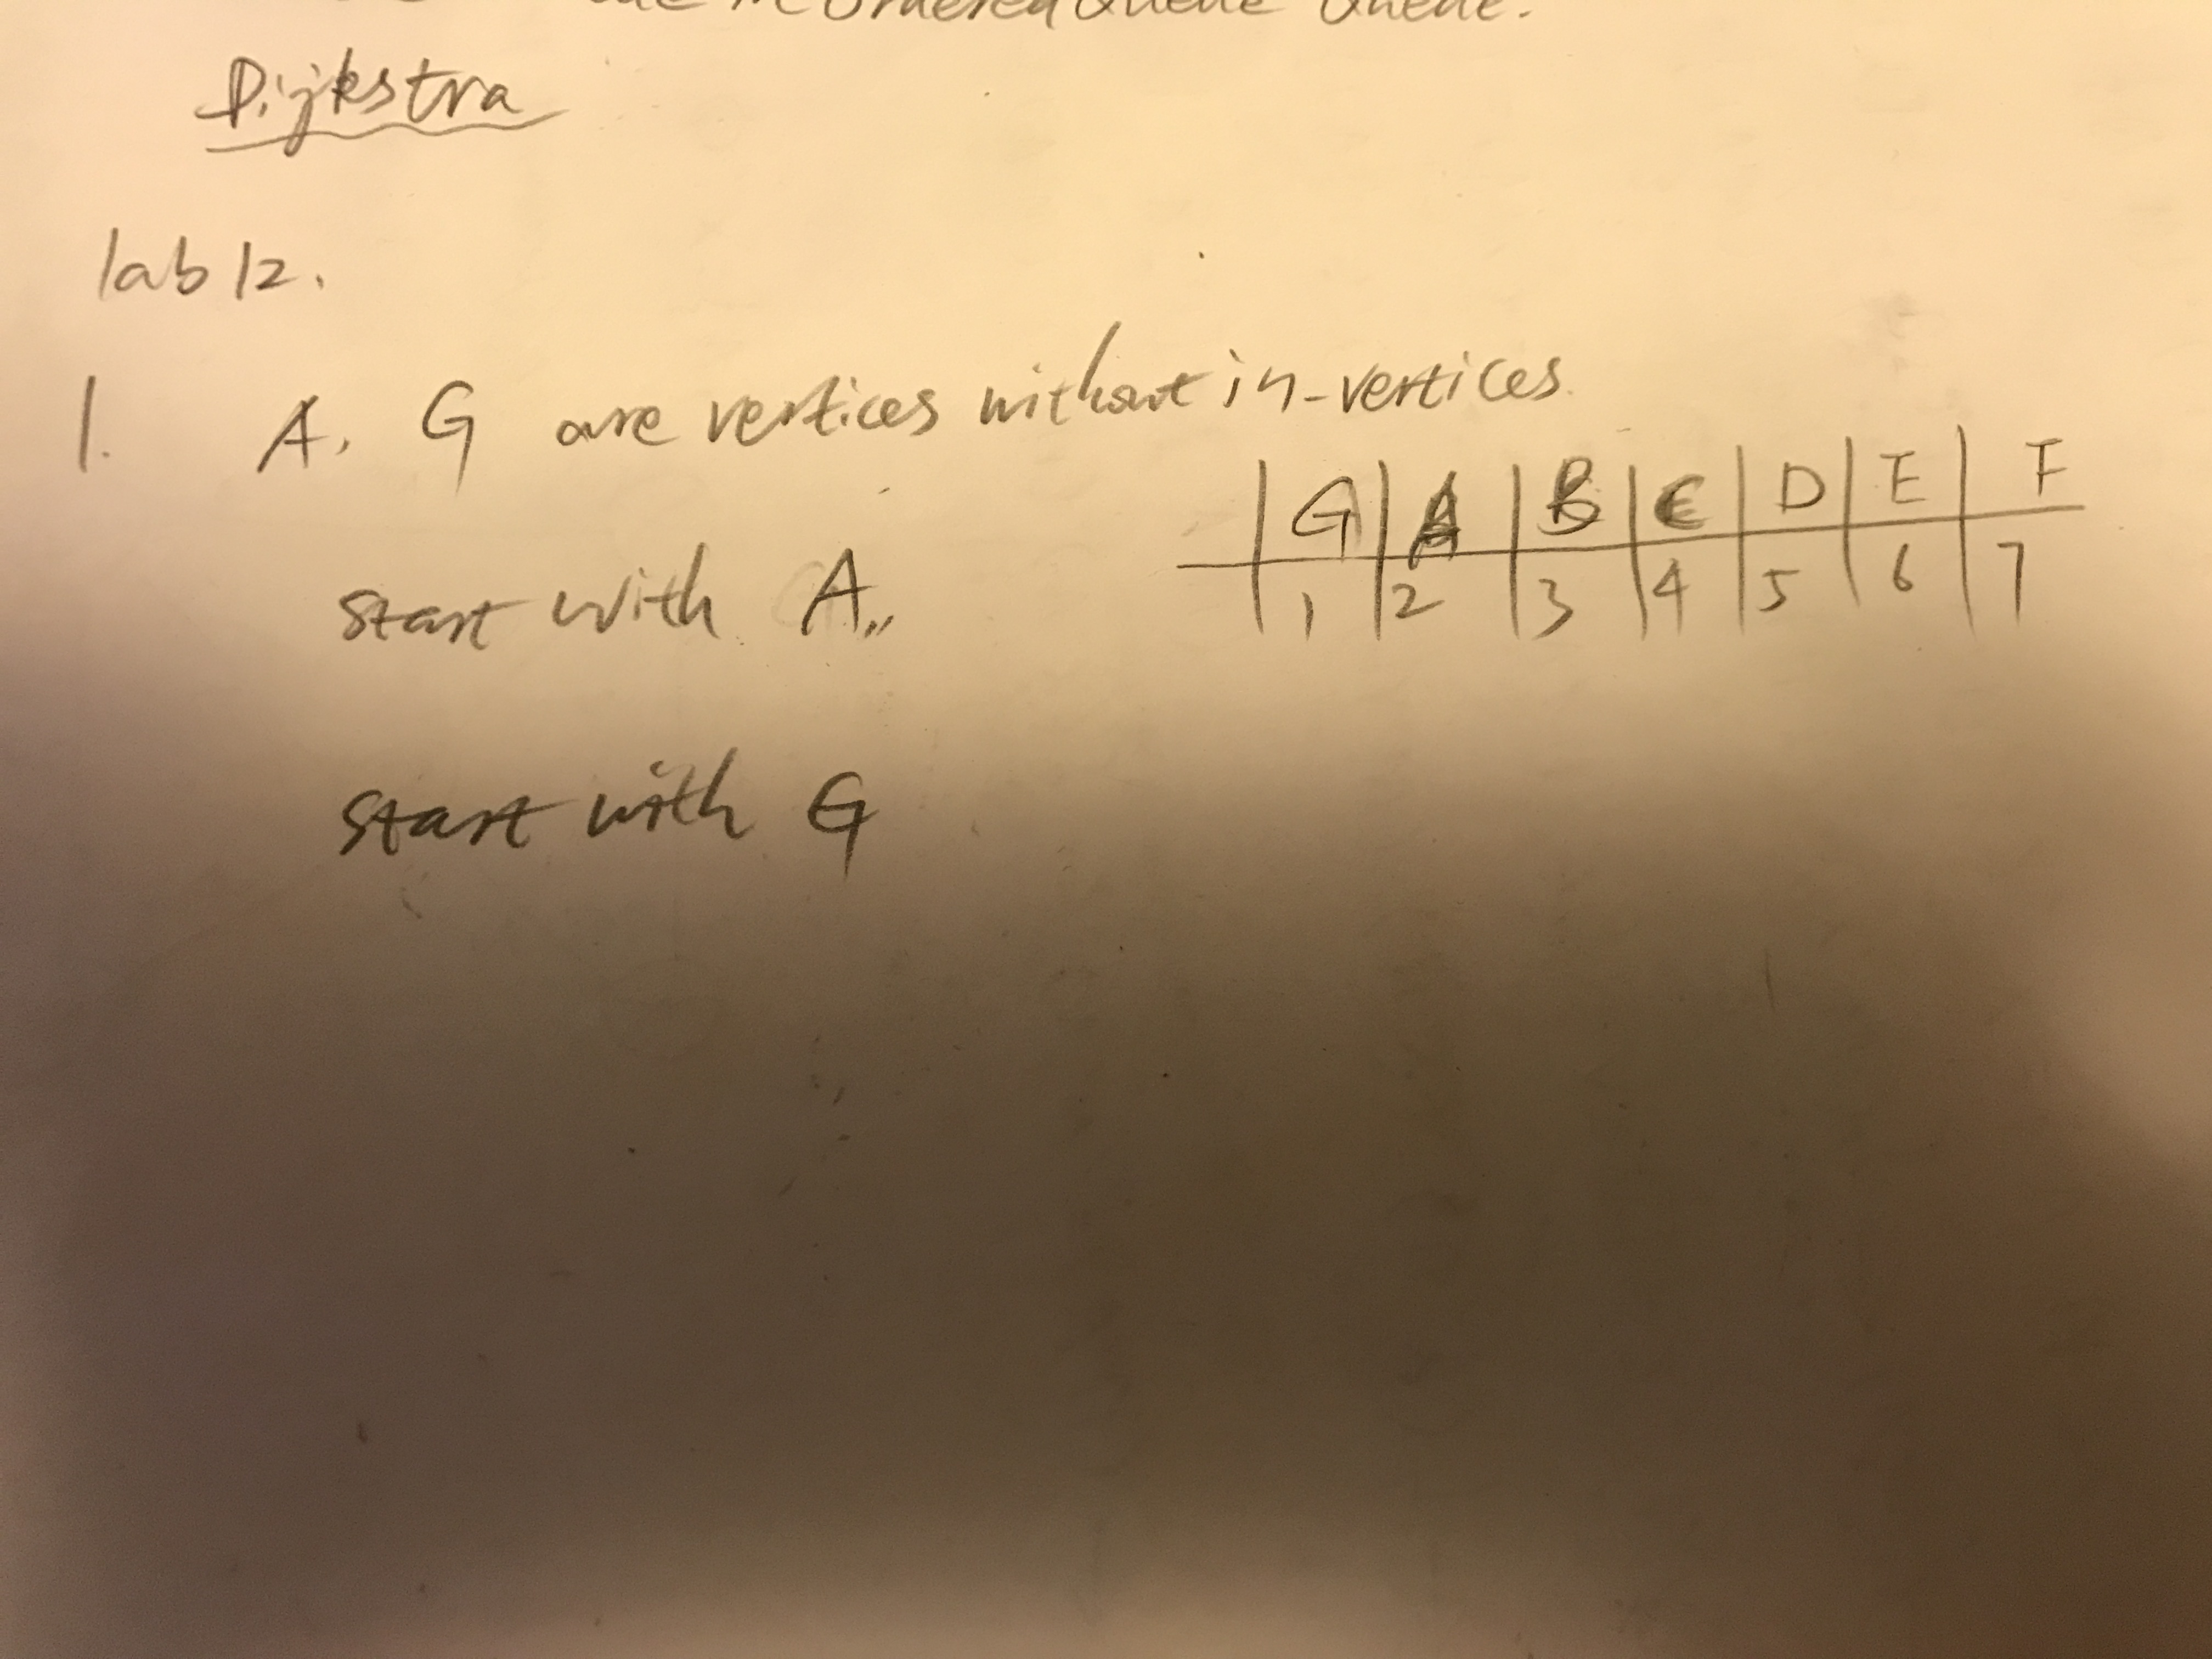 Dijkstra
lab 12.
1. A, G are vertices without in-vertices
G A B C D E F
start with A,, 1 2 3 4 5 6 7
start with G